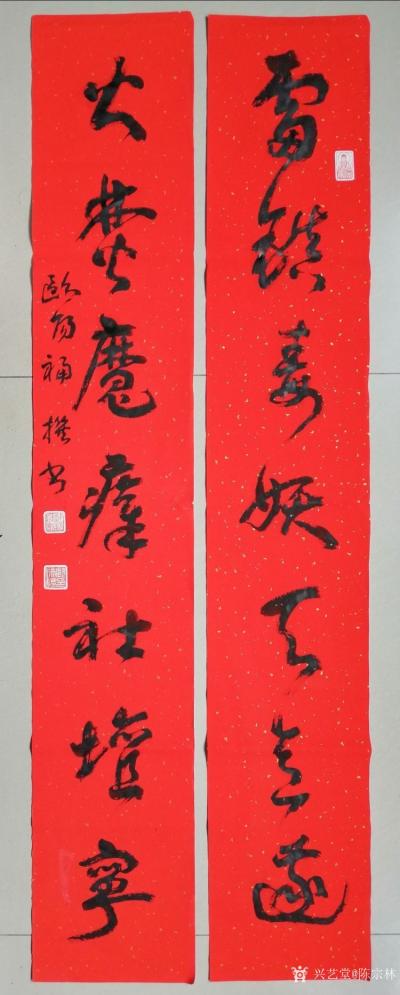 雷鎮毒妖天意遂
火焚魔瘴社壇寧
歐陽福撰书
兴艺堂@陈宗林